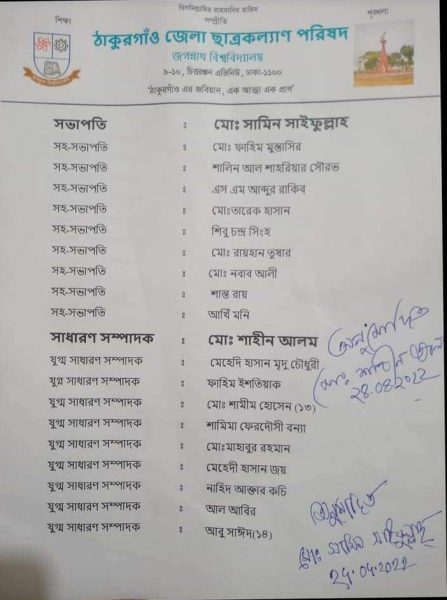 বিসমিল্লাহির রাহমানির রাহিম
শিক্ষা
সম্প্রীতি
শৃঙ্খলা
ঠাকুরগাঁও জেলা ছাত্রকল্যাণ পরিষদ
জগন্নাথ বিশ্ববিদ্যালয়
৯-১০, চিত্তরঞ্জন এভিনিউ, ঢাকা-১১০০
'ঠাকুরগাঁও এর জবিয়ান, এক আত্মা এক প্রাণ'
সভাপতি : মোঃ সামিন সাইফুল্লাহ
সহ-সভাপতি : মোঃ ফাহিম মুন্তাসির
সহ-সভাপতি : শালিন আল শাহরিয়ার সৌরভ
সহ-সভাপতি : এস এম আব্দুর রাকিব
সহ-সভাপতি : মোঃতারেক হাসান
সহ-সভাপতি : শিবু চন্দ্র সিংহ
সহ-সভাপতি : মোঃ রায়হান তুষার
সহ-সভাপতি : মোঃ নবাব আলী
সহ-সভাপতি : শান্ত রায়
সহ-সভাপতি : আর্খি মনি
সাধারণ সম্পাদক : মোঃ শাহীন আলম
যুগ্ম সাধারণ সম্পাদক : মেহেদি হাসান মৃদু চৌধুরী
যুগ্ম সাধারণ সম্পাদক : ফাহিম ইশতিয়াক
যুগ্ম সাধারণ সম্পাদক : মোঃ শামীম হোসেন (১৩)
যুগ্ম সাধারণ সম্পাদক : শামিমা ফেরদৌসী বন্যা
যুগ্ম সাধারণ সম্পাদক : মোঃমাহাবুর রহমান
যুগ্ম সাধারণ সম্পাদক : মেহেদী হাসান জয়
যুগ্ম সাধারণ সম্পাদক : নাহিদ আক্তার কচি
যুগ্ম সাধারণ সম্পাদক : আল আবির
যুগ্ম সাধারণ সম্পাদক : আবু সাঈদ(১৪)
অনুমোদিত
মোঃ শাহীন আলম
২৪.০৪.২০২২
অনুমোদিত
মোঃ সামিন সাইফুল্লাহ
২৪.০৪.২০২২